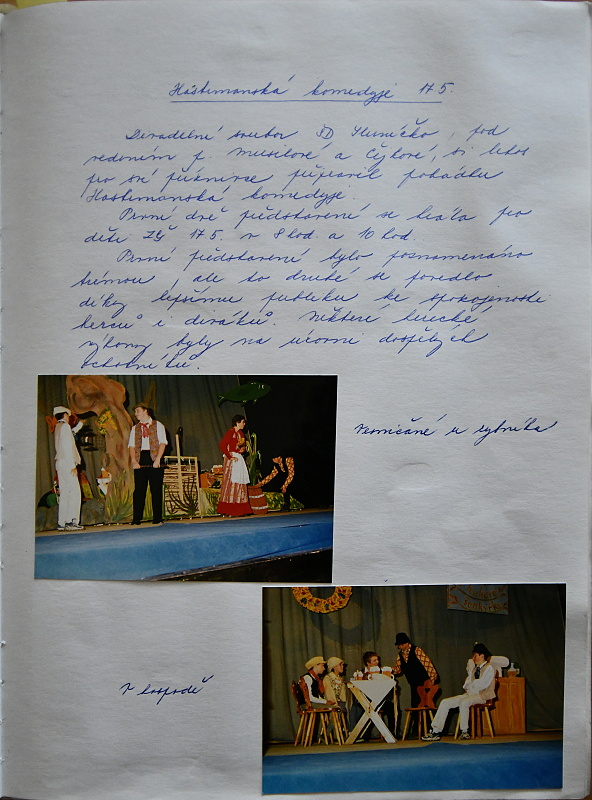 Hastrmanská komedyje 17.5.
Divadelní soubor DD Sluníčko, pod
vedením p. Musilové a Čížkové, si letos
po své přípravil pohádku
Hastrmanská komedyje.
První dvě představení se hrála pro
děti ZŠ 17.5. v 8 hod. a 10 hod.
První představení bylo poznamenáno
trémou, ale to druhé se povedlo
díky lepšímu publiku ke spokojenosti
herců i diváků. Některé herecké
výkony byly na úrovni dospělých
ochotníků.
u rybníka
V hospodě